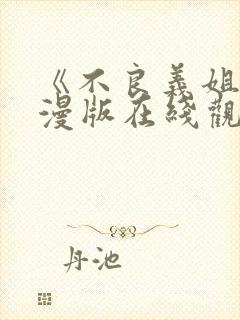 《不良義姐
漫版在綫觀
丹池